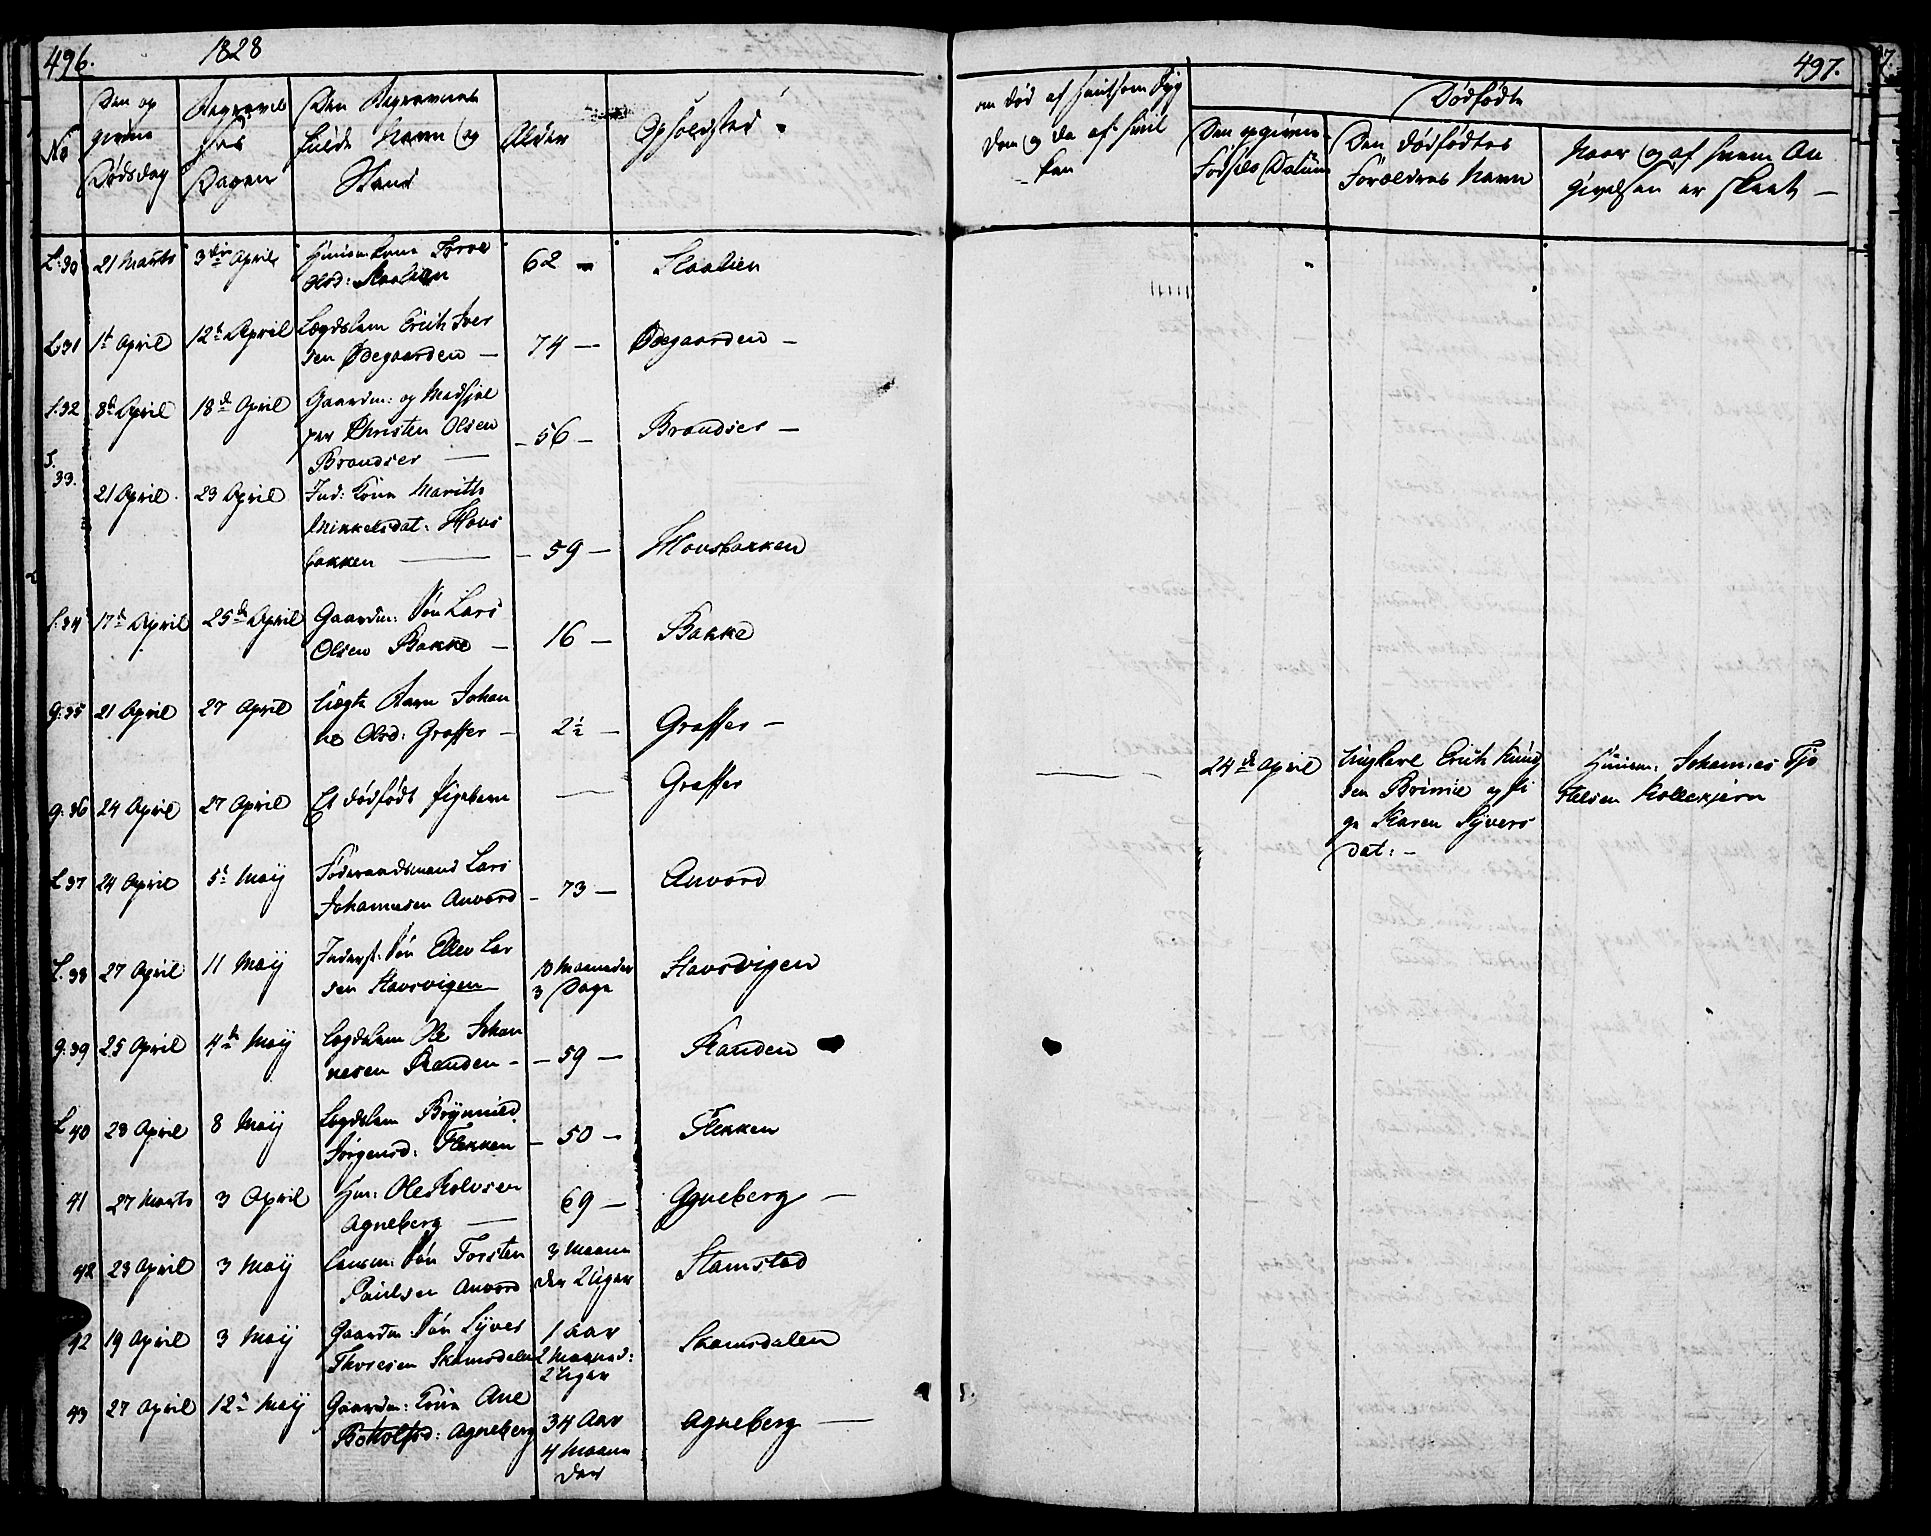 496.
1828
No
Den op
givne
Dødsdag
Begravel
ses
Dagen
Den Begravnes
fulde Navn og
Stand
Alder
Opholdsted
L:30 21 Marts 3die April Huusm: Kone
Olsd: Skaalien 62 Skaalien
L:31 1te April 12te April Lægdslem Erich Iver
sen Ødegaarden — 74 — Ødegaarden —
L:32 8de April 18de April Gaardm: og Medhjel
per Christen Olsen
Brandser — 56 — Brandser —
L:33. 21 April 23 April Ind: Kone Maritte
Mikkelsdat: Hous
bakken — 59 — Housbakken
L:34 17de April 25de April Gaardm: Søn Lars
Olsen Bakke — 16 — Bakke
G:35 21 April 27 April Ægte Barn Johan
ne Olsd: Graffer — 2½ — Graffer —
G:36 24 April 27 April Et dødfødt Pigebarn — Graffer
L:37 24 April 5te Maij Føderaadsmand Lars
Johannesen Anvord — 73 — Anvord
L:38 27 April 11 Maij Inderst: Søn Ellev Lar
sen Stavsvigen 10 Maaneder
3 Dage Stavsvigen
G:39 25 April 4de Maij Lægdslem Ole Johan
nesen Randen — 59 — Randen
L:40 28 April 8 Maij Lægdslem Brynnild
Jørgensd: Flekken — 50 — Flekken
41 27 Marts 3 April Hm: Ole Kolvsen
Agneberg — 69 — Agneberg —
42 23 April 3 Maij Søn Torsten
Paulsen Anvord 3 Maane
der 2 Uger Stamstad
42 19 April 3 Maij Gaardm: Søn Syver
Thoresen Skamsdalen 1 Aar
2 Maaned:
2 Uger Skamsdalen
43 27 April 12te Maij Gaardm: Kone Ane
Botholfsd: Agneberg 34 Aar
4 Maane
der Agneberg —
497.
om død af smitsom Syg
dom og da af hvil
ken
Dødfødte
Den opgivne
Fødsels Datum
Den dødfødtes
Forældres Navn
Naar og af hvem An
givelsen er skeet —
24de April
Ungkarl Erich Knud
sen Brimie og Pi
ge Karen Syvers
dat: —
Huusm: Johannes Tjø
stelsen Kollekjern